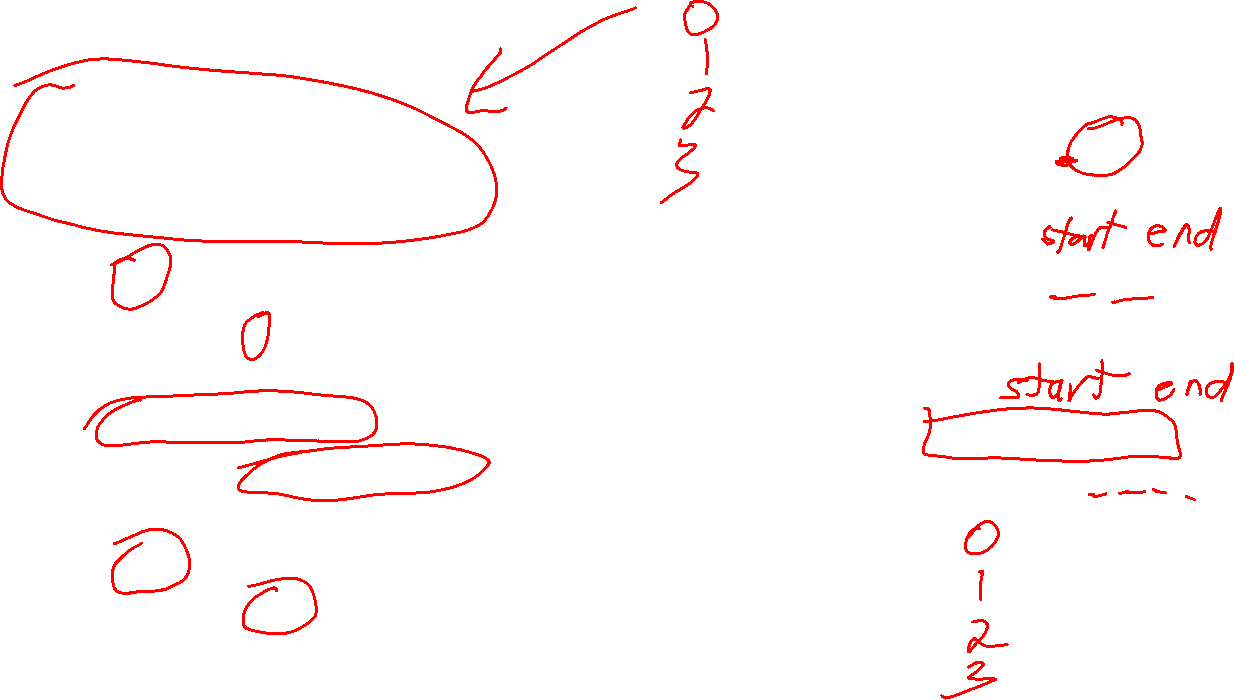 0
1
2
3
start end
start end
0
1
2
3